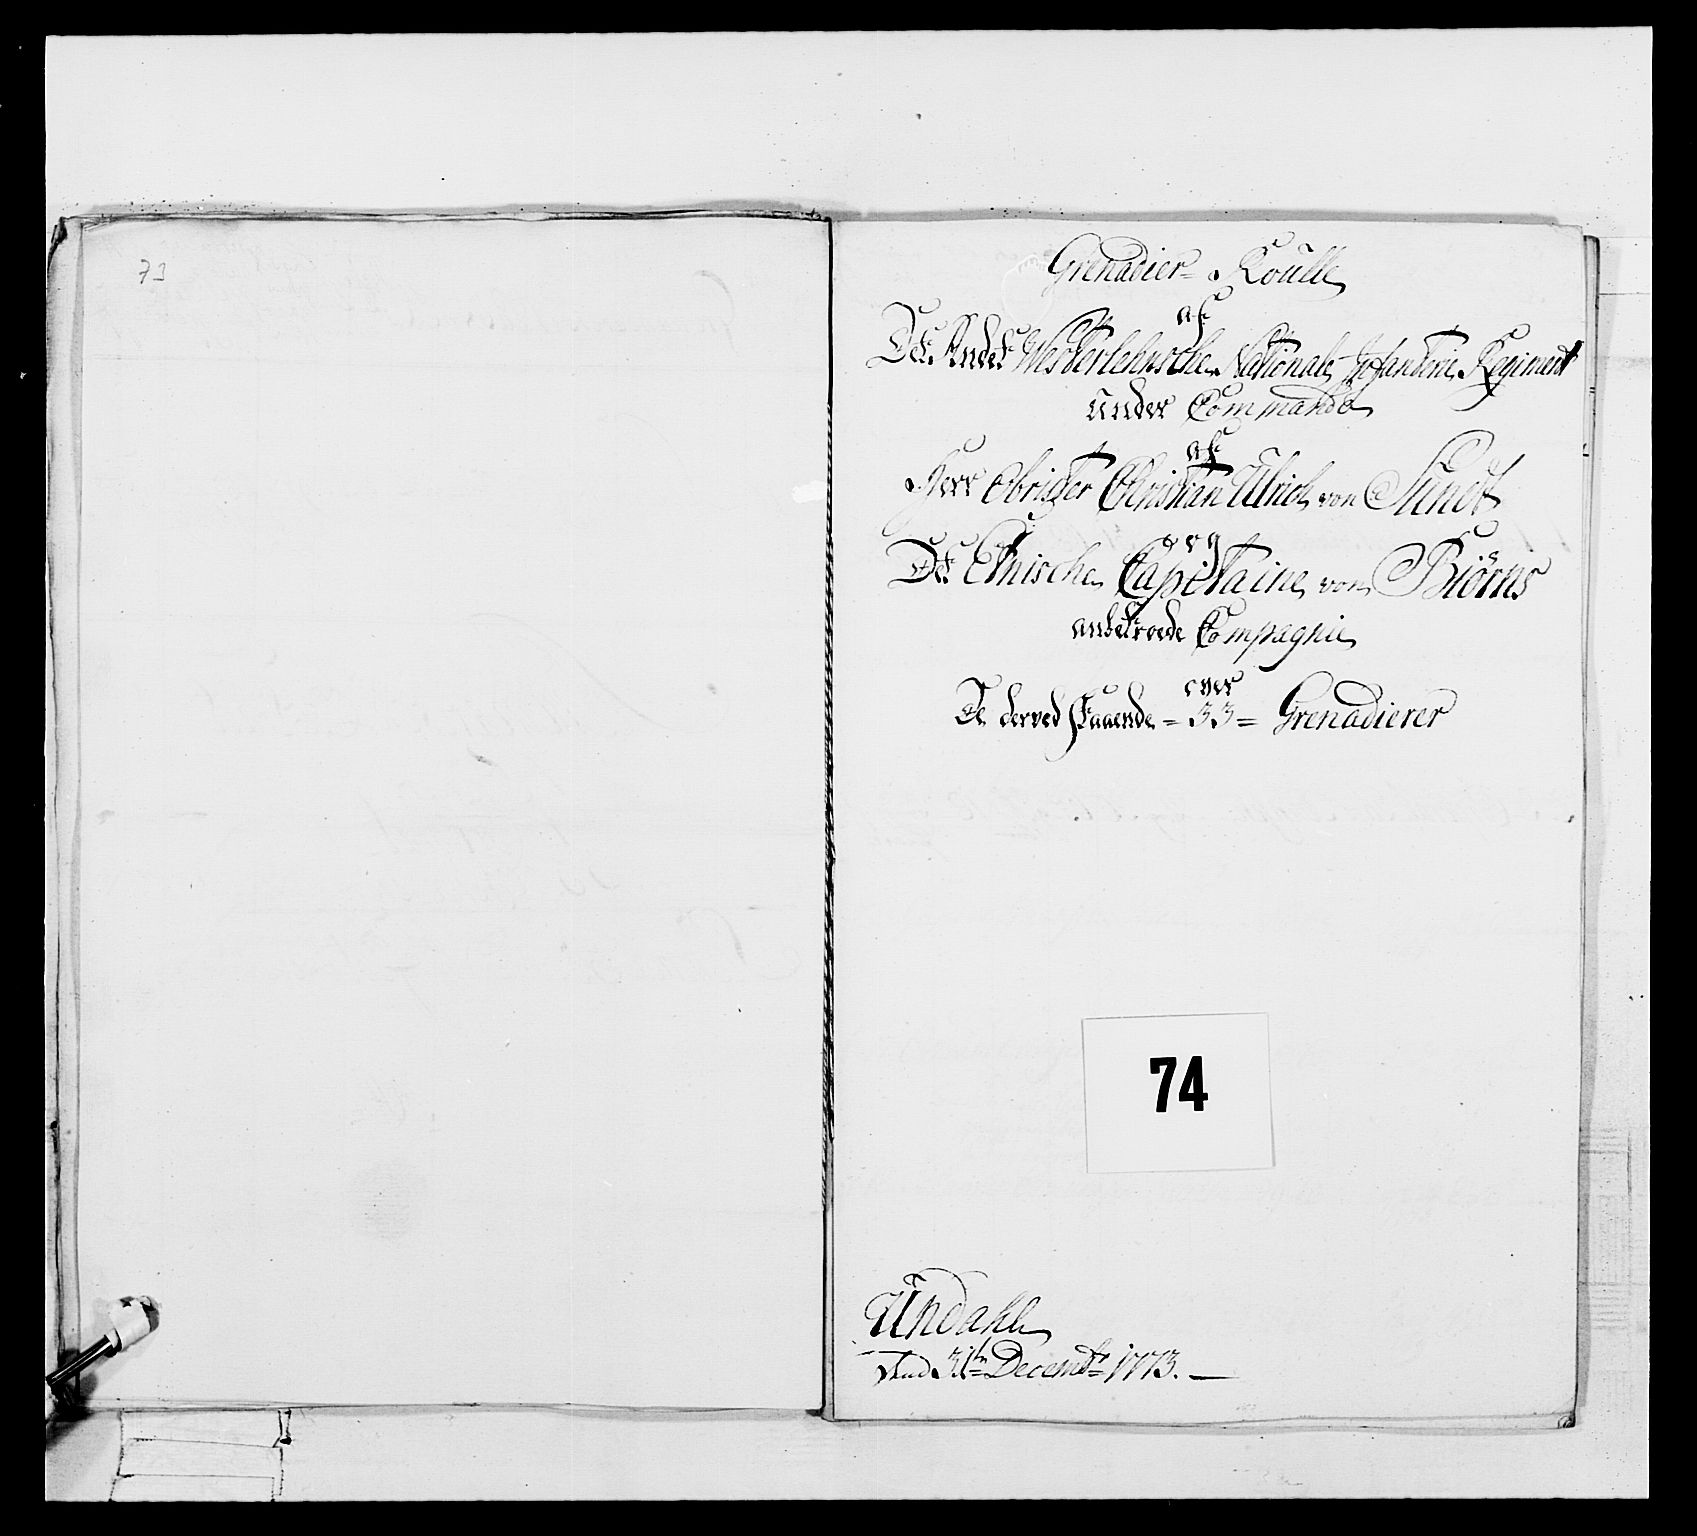 73
Grenadier= Roulle
af
Det Andet Westerlehnsche Nationale Infanterie Regiment
under Commando
af
Herr Obrister Christian Ulrich von Sundt
og
Det Elnische Capitaine von Biörns
anbetroede Compagnie
over
De derved staaende = 33 = Grenadierer
74
Undahl
dend 31te Decembr 1773.